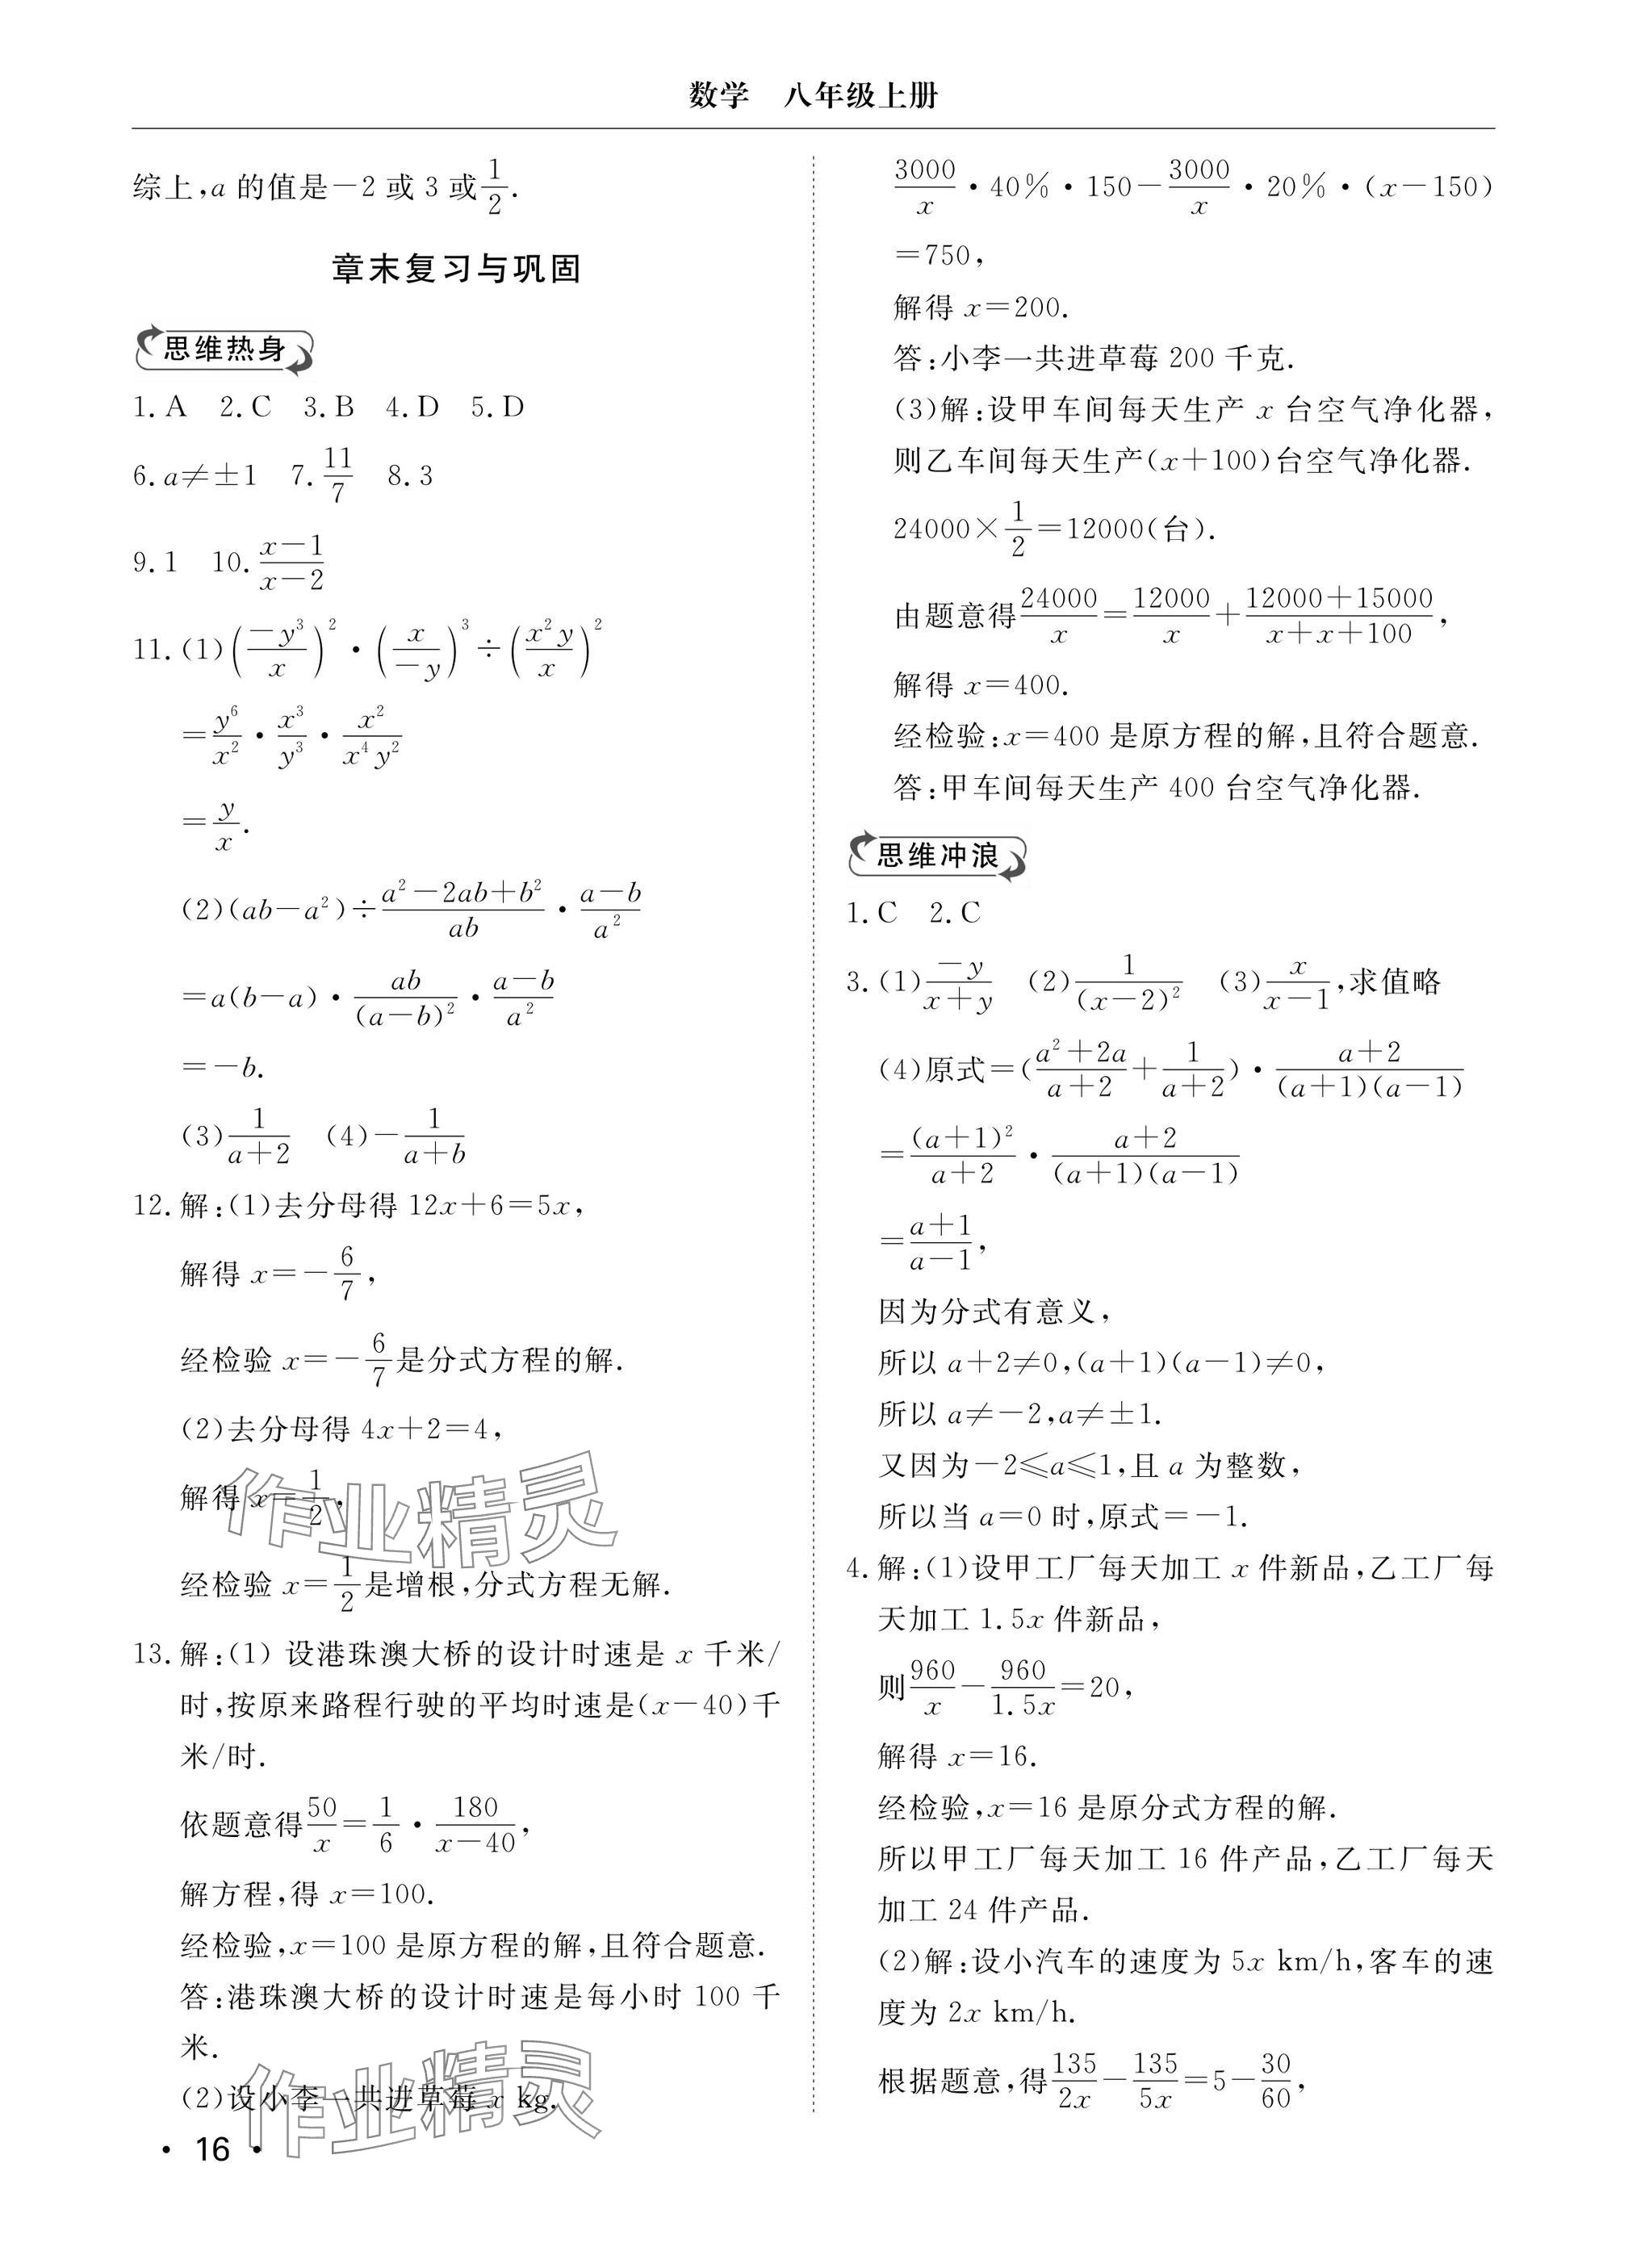 数学 八年级上册
综上,a 的值是-2 或 3 或\frac{1}{2}.
章末复习与巩固
思维热身
1. A 2. C 3. B 4. D 5. D
6. a≠±1 7. \frac{11}{7} 8. 3
9. 1 10. \frac{x-1}{x-2}
11. (1)(\frac{-y^3}{x})^2·(\frac{x}{-y})^3÷(\frac{x^2y}{x})^2
=\frac{y^6}{x^2}·\frac{x^3}{y^3}·\frac{x^2}{x^4y^2}
=\frac{y}{x}.
(2)(ab-a^2)÷\frac{a^2-2ab+b^2}{ab}·\frac{a-b}{a^2}
=a(b-a)·\frac{ab}{(a-b)^2}·\frac{a-b}{a^2}
=-b.
(3)\frac{1}{a+2} (4)-\frac{1}{a+b}
12. 解:(1)去分母得 12x+6=5x,
解得 x=-\frac{6}{7},
经检验 x=-\frac{6}{7}是分式方程的解.
(2)去分母得 4x+2=4,
解得 x=\frac{1}{2},
经检验 x=\frac{1}{2}是增根,分式方程无解.
13. 解:(1) 设港珠澳大桥的设计时速是 x 千米/
时,按原来路程行驶的平均时速是(x-40)千
米/时.
依题意得\frac{50}{x}=\frac{1}{6}·\frac{180}{x-40},
解方程,得 x=100.
经检验,x=100 是原方程的解,且符合题意.
答:港珠澳大桥的设计时速是每小时 100 千
米.
(2)设小李一共进草莓 x kg.
\frac{3000}{x}·40%·150-\frac{3000}{x}·20%·(x-150)
=750,
解得 x=200.
答:小李一共进草莓 200 千克.
(3)解:设甲车间每天生产 x 台空气净化器,
则乙车间每天生产(x+100)台空气净化器.
24000×\frac{1}{2}=12000(台).
由题意得\frac{24000}{x}=\frac{12000}{x}+\frac{12000+15000}{x+x+100},
解得 x=400.
经检验:x=400 是原方程的解,且符合题意.
答:甲车间每天生产 400 台空气净化器.
思维冲浪
1. C 2. C
3. (1)\frac{-y}{x+y} (2)\frac{1}{(x-2)^2} (3)\frac{x}{x-1},求值略
(4)原式=(\frac{a^2+2a}{a+2}+\frac{1}{a+2})·\frac{a+2}{(a+1)(a-1)}
=\frac{(a+1)^2}{a+2}·\frac{a+2}{(a+1)(a-1)}
=\frac{a+1}{a-1},
因为分式有意义,
所以 a+2≠0,(a+1)(a-1)≠0,
所以 a≠-2,a≠±1.
又因为-2≤a≤1,且 a 为整数,
所以当 a=0 时,原式=-1.
4. 解:(1)设甲工厂每天加工 x 件新品,乙工厂每
天加工 1.5x 件新品,
则\frac{960}{x}-\frac{960}{1.5x}=20,
解得 x=16.
经检验,x=16 是原分式方程的解.
所以甲工厂每天加工 16 件产品,乙工厂每天
加工 24 件产品.
(2)解:设小汽车的速度为 5x km/h,客车的速
度为 2x km/h.
根据题意,得\frac{135}{2x}-\frac{135}{5x}=5-\frac{30}{60},
· 16 ·
作业精灵
作业精灵